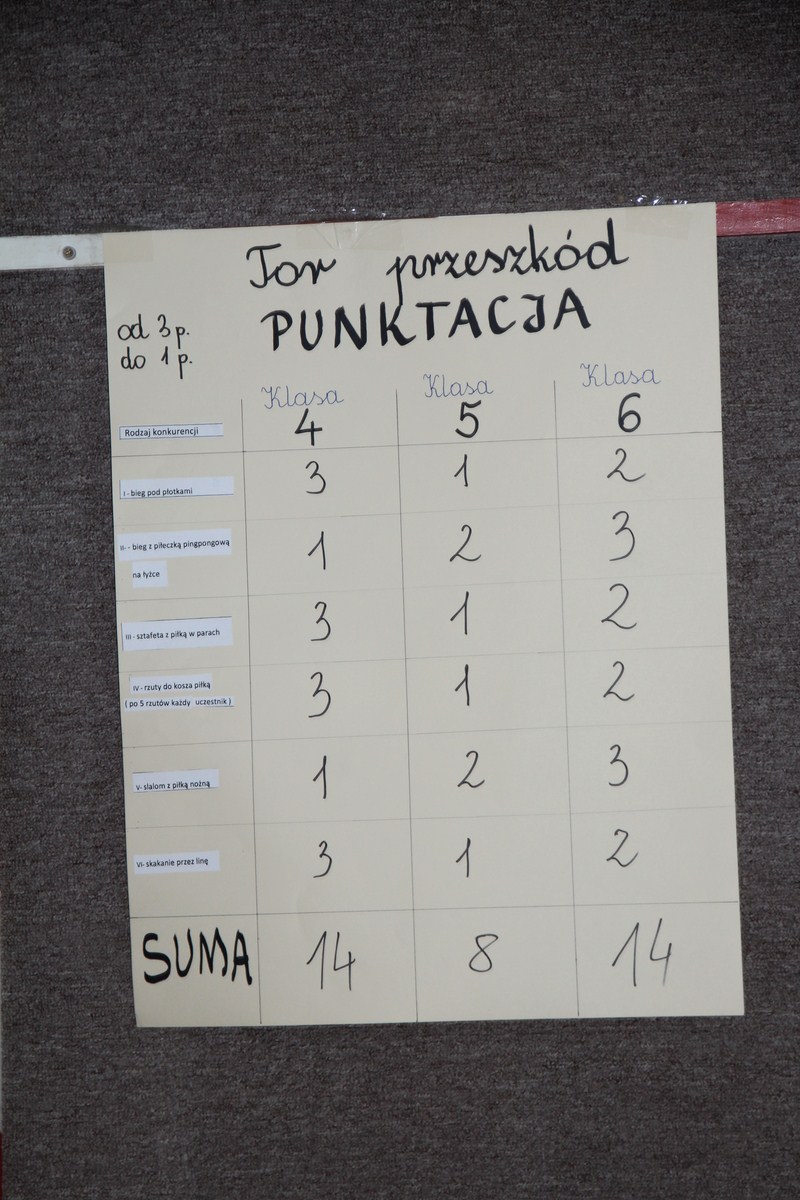 Tor przeszkód
PUNKTACJA
od 3 p.
do 1 p.
Klasa Klasa Klasa
Rodzaj konkurencji 4 5 6
I - bieg pod płotkami 3 1 2
II - bieg z piłeczką pingpongową
na łyżce 1 2 3
III - sztafeta z piłką w parach 3 1 2
IV - rzuty do kosza piłką
( po 5 rzutów każdy uczestnik ) 3 1 2
V- slalom z piłką nożną 1 2 3
VI- skakanie przez linę 3 1 2
SUMA 14 8 14